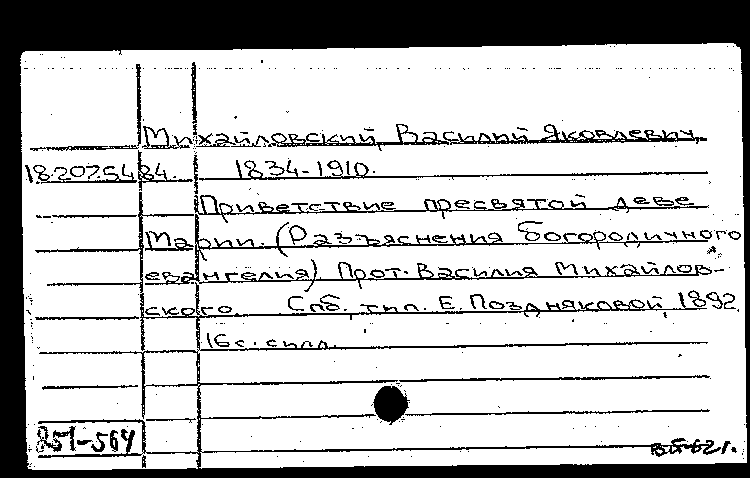 Михайловский, Василий Яковлевич,
18.207.54 84. 1834-1910.
Приветствие пресвятой деве
Марии. (Разъяснения богородичного
евангелия) Прот. Василия Михайлов-
ского. Спб, тип. Е. Поздняковой, 1892.
16 с. илл.
851-564